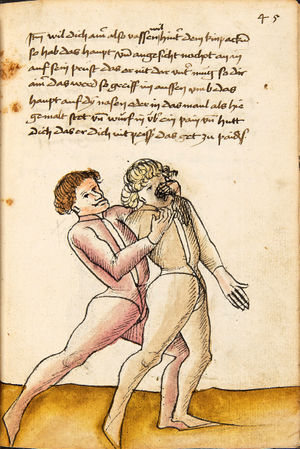 45
Itm̄ wil dich ainer also vassen hinter dem kinpacken
so hab das haupt vn̄ angesicht nochet an in
auf sein prust das er nit dar vnter mug so dir
ain das werd so greiff im aussen vmb das
haupt auf dy nasen oder in das maul als hie
gemalt stet vn̄ würf in vber ein pain vn̄ hutt
dich das er dich nit peiss das get zu paiden